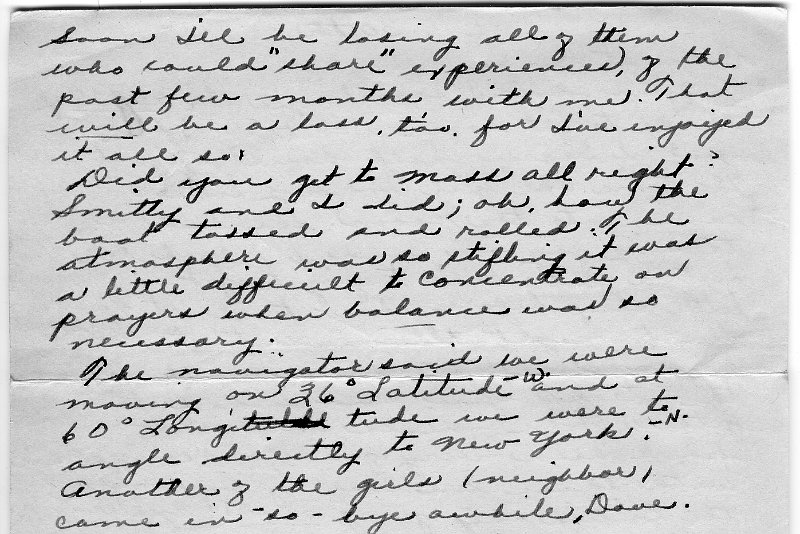 Soon I'll be losing all of them
who could "share" experiences, of the
past few months with me. That
will be a loss, too, for I've enjoyed
it all so!
Did you get to Mass all right?
Smitty and I did; oh, how the
boat tossed and rolled. The
atmosphere was so stifling it was
a little difficult to concentrate on
prayers when balance was so
necessary.
The navigator said we were
moving on 36° Latitude -W. and at
60° Longitude we were to -N.
angle directly to New York.
Another of the girls (neighbor)
came in - so - bye awhile, Dave.